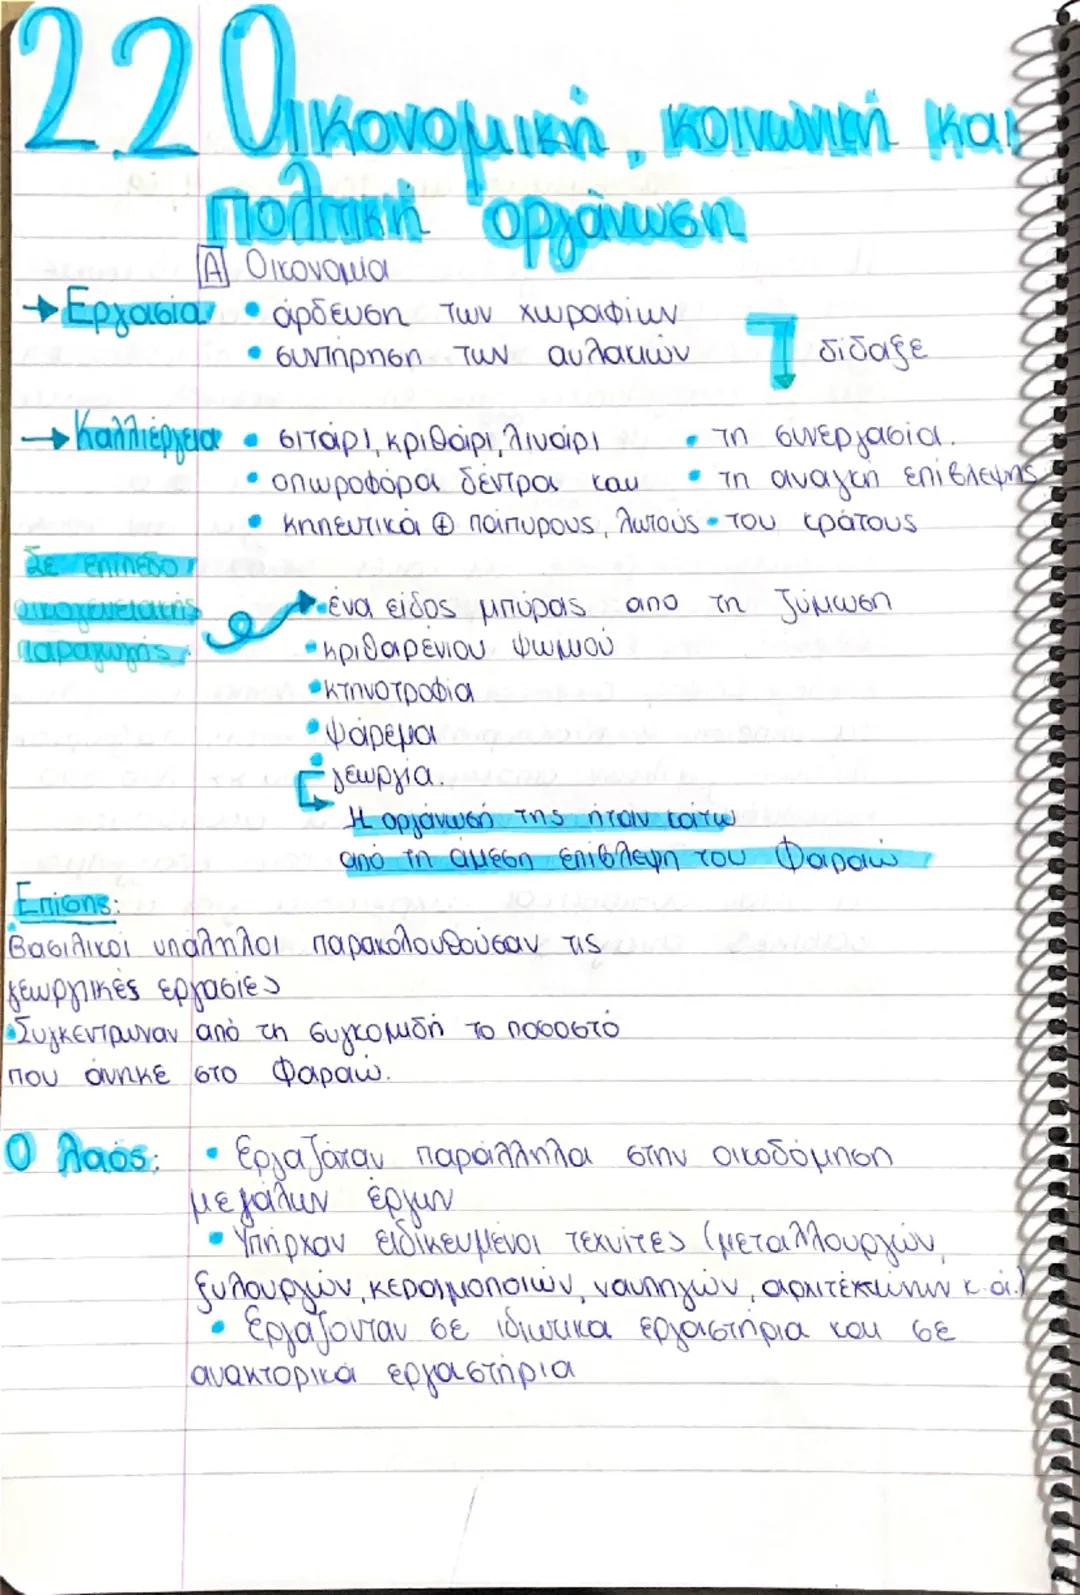 2.2 Οικονομική, κοινωνική και
πολιτική οργάνωση
Α Οικονομία
→ Εργασία • άρδευση των χωραφιών
• συντήρηση των αυλακιών δίδαξε
→ Καλλιέργεια • σιτάρι, κριθάρι, λινάρι • τη συνεργασία.
• οπωροφόρα δέντρα και • τη αναγκη επίβλεψης
• κηπευτικά ⊕ πάπυρους, λωτούς • του κράτους
Σε επίπεδο
οικογενειακής • ένα είδος μπύρας από τη ζύμωση
παραγωγής • κριθαρένιου ψωμιού
• κτηνοτροφία
• ψάρεμα
• γεωργία.
Η οργάνωσή της ήταν κάτω
από τη άμεση επίβλεψη του Φαραώ
Επίσης:
• Βασιλικοί υπάλληλοι παρακολουθούσαν τις
γεωργικές εργασίες
• Συγκέντρωναν από τη συγκομιδή το ποσοστό
που άνηκε στο Φαραώ.
Ο λαός: • Εργαζόταν παράλληλα στην οικοδόμηση
μεγάλων έργων
• Υπήρχαν ειδικευμένοι τεχνίτες (μεταλλουργών,
ξυλουργών, κεραμοποιών, ναυπηγών, αρχιτεκτόνων κ.ά.)
• Εργάζονταν σε ιδιωτικά εργαστήρια και σε
ανακτορικά εργαστήρια